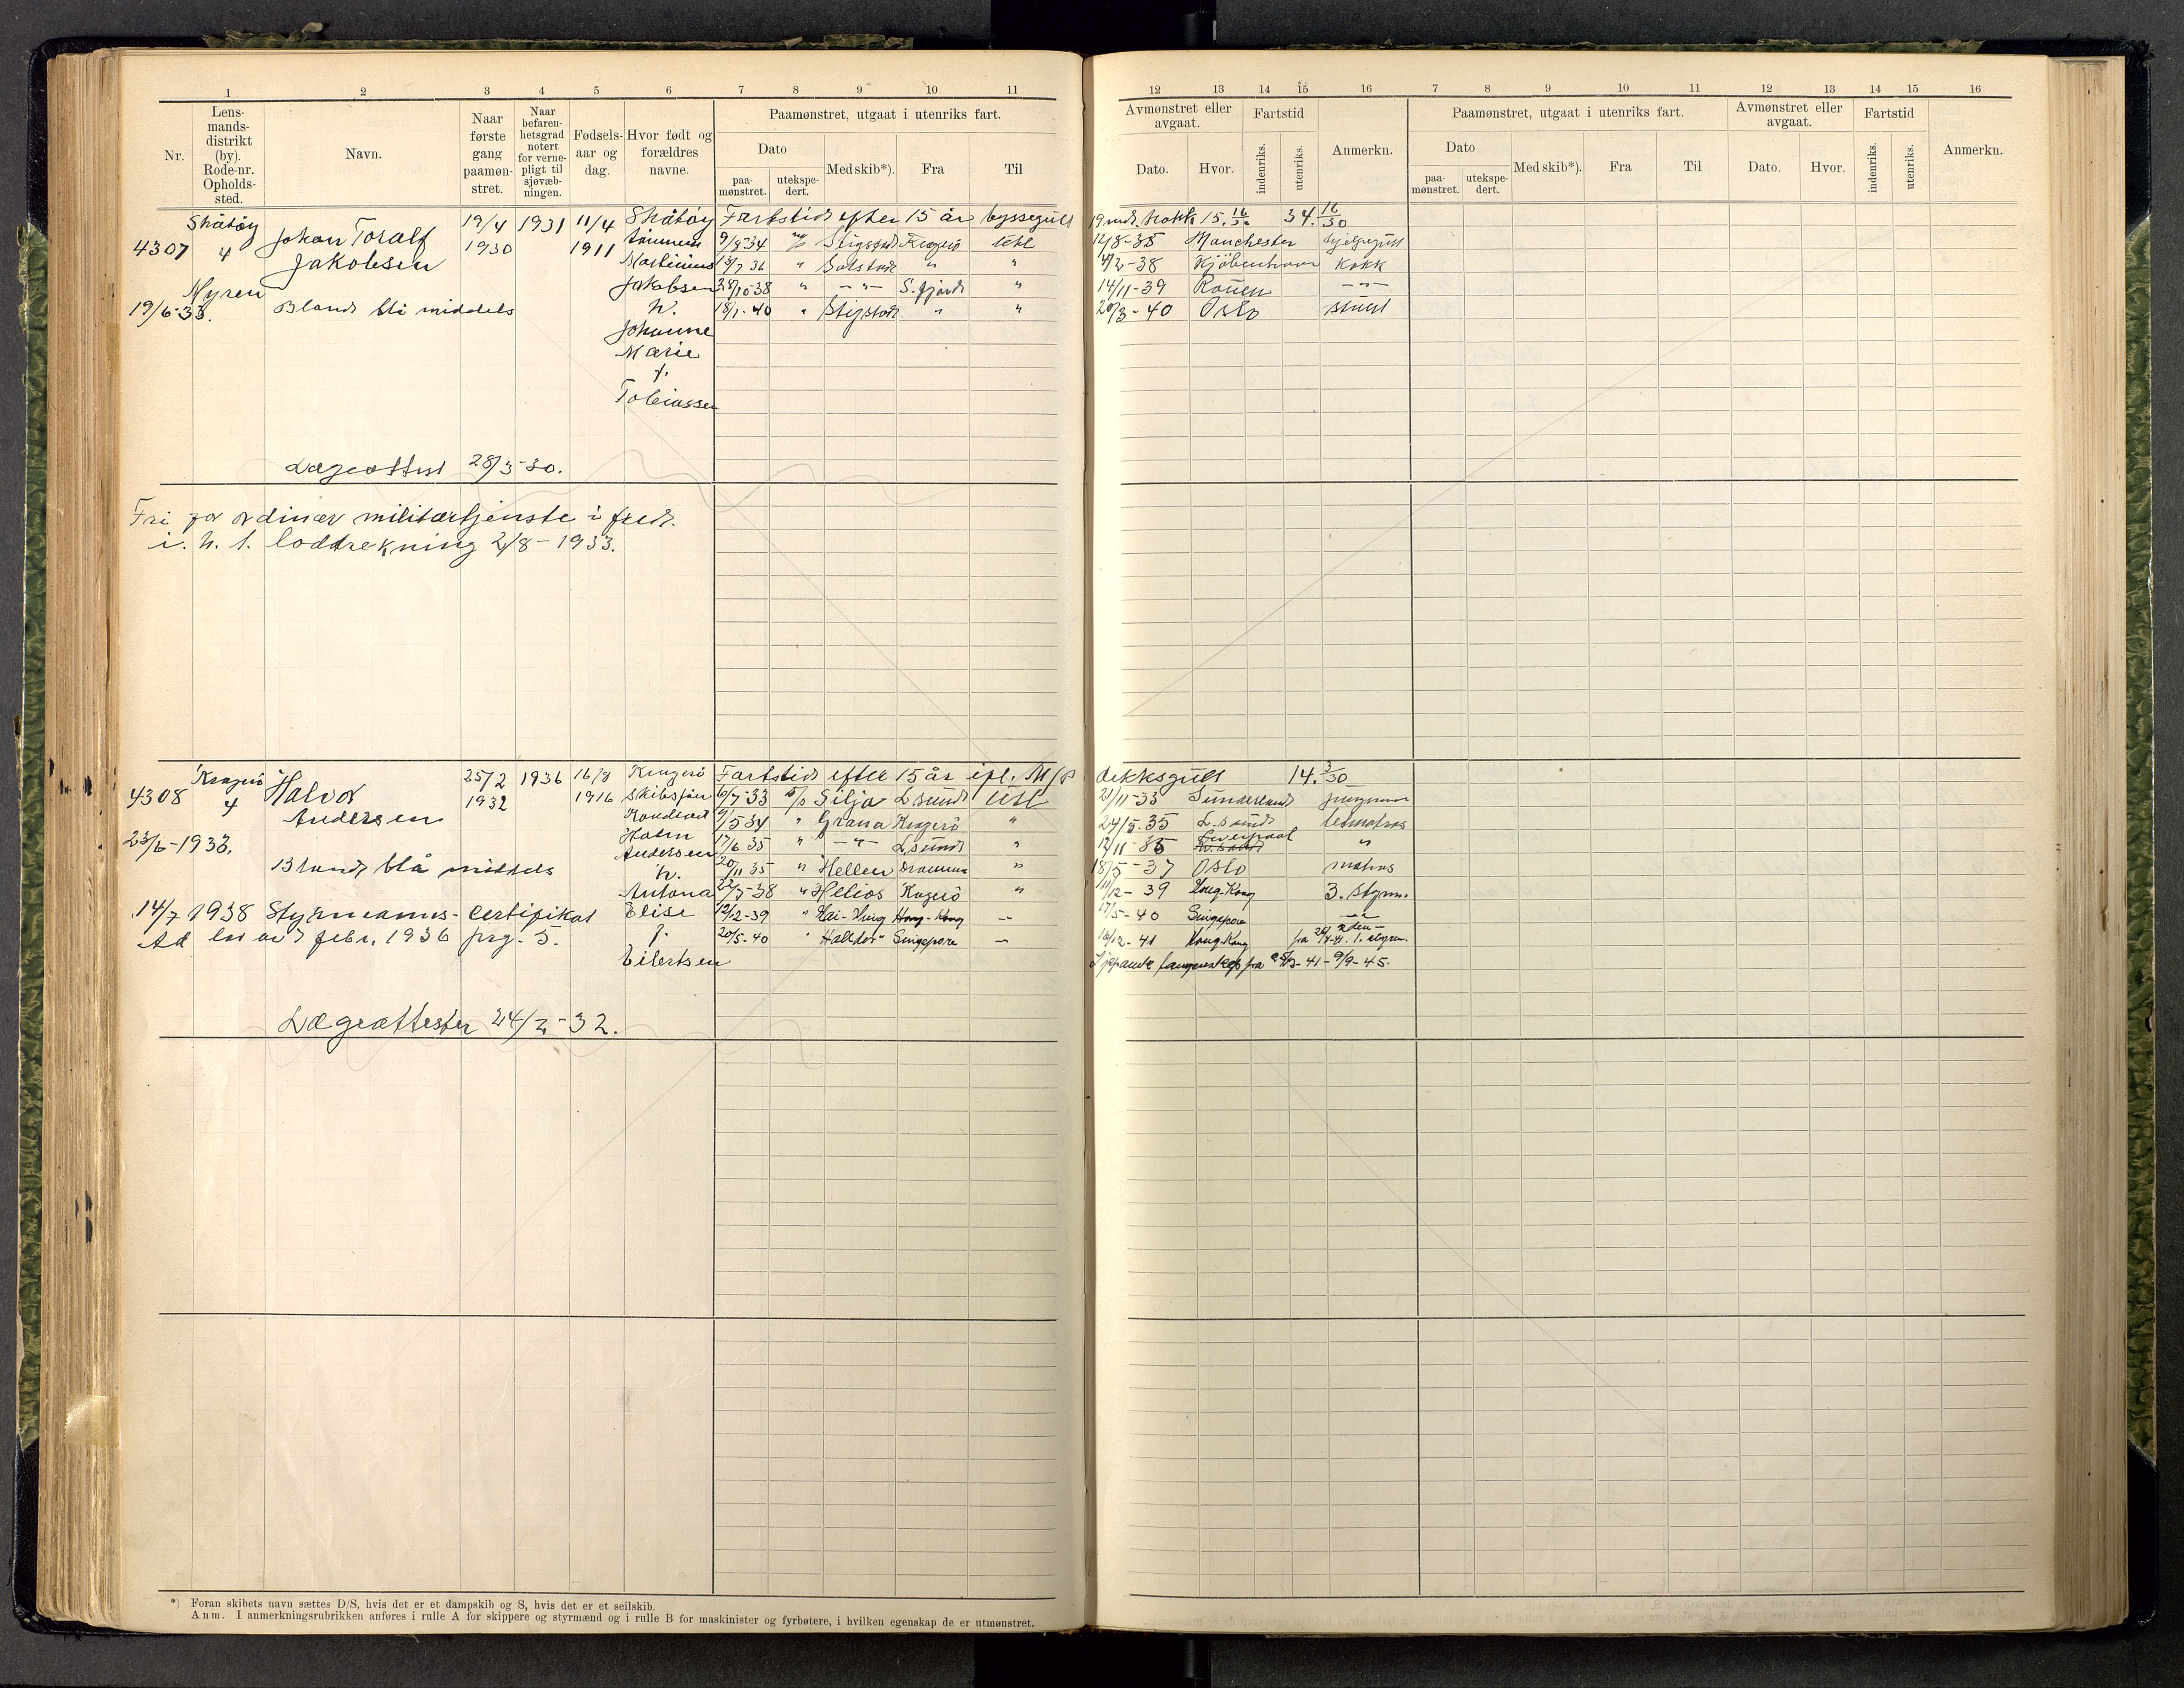 1 2 3 4 5 6 7 8 9 10 11
Nr.
Lens-
mands-
distrikt
(by).
Rode-nr.
Opholds-
sted.
Navn.
Naar
første
gang
paamøn-
stret.
Naar
befaren-
hetsgrad
notert
for verne-
pligt til
sjøvæb-
ningen.
Fødsels-
aar og
dag.
Hvor født og
forældres
navne.
Paamønstret, utgaat i utenriks fart.
Dato
paa-
mønstret.
utekspe-
dert.
Med skib*).
Fra
Til
12 13 14 15 16 7 8 9 10 11 12 13 14 15 16
Avmønstret eller
avgaat.
Dato.
Hvor.
Fartstid
indenriks.
utenriks.
Anmerkn.
Paamønstret, utgaat i utenriks fart.
Dato
paa-
mønstret.
utekspe-
dert.
Med skib*).
Fra
Til
Avmønstret eller
avgaat.
Dato.
Hvor.
Fartstid
indenriks.
utenriks.
Anmerkn.
4307
19/6-33.
Skåtøy
4
Myren
Johan Toralf
Jakobsen
Blond blå middels
19/4
1930
1931
11/4
1911
Skåtøy
tømmerm
Martinius
Jakobsen
h.
Johanne
Marie
f.
Tobiassen
Fartstid efter 15 år byssegutt 19 md. kokk 15.16/30 34.16/30
9/8-34 Stigstad Kragerø Utl 12/8-35 Manchester hjelpegutt
13/7 36 " Solstad " " 4/2-38 Kjøbenhavn kokk
28/10-38 " -"- S.fjord " 14/11-39 Rouen -"-
18/1-40 " Stigstad " " 20/3-40 Oslo stuert
Lægeattest 28/3-30.
Fri for ordinær militærtjenste i fred.
i. h. t. loddtrekning 2/8-1933.
4308
23/6-1933.
Kragerø
4
Halvor
Andersen
Blond blå middels
25/2
1932
1936
16/8
1916
Kragerø
skibsfør
Hans
Andersen
h.
Antona
Elise
f.
Eilertsen
Fartstid efter 15 år ifl. M/p dekksgutt 14.3/30
6/7-33 Silja L.sund Utl 21/11-33 Sunderland jungmann
9/5 34 " Grana Kragerø " 24/5-35 L.sund lettmatros
17/6 35 " -"- L.sund " 12/11-35 Liverpool "
20/11 35 " Hellen Drammen " 18/5-37 Oslo matros
22/7-38 " Helios Kragerø " 11/12-39 Hong-Kong 3. styrm.
12/12-39 " Hai-Hing Hong-Kong — 17/5-40 Singapore -"-
20/5-40 " Halldor Singapore — 16/12-41 Hong-Kong 2den -
fra 26/4-41. 1. styrm.
I japansk fangenskap fra 25/12-41 - 9/9-45.
14/7 1938 Styrmanns-certifikat
Ad lov av 7 febr. 1936 prg. 5.
Lægeattester 24/2-32.
*) Foran skibets navn sættes D/S, hvis det er et dampskib og S, hvis det er et seilskib.
Anm. I anmerkningsrubrikken anføres i rulle A for skippere og styrmænd og i rulle B for maskinister og fyrbøtere, i hvilken egenskap de er utmønstret.